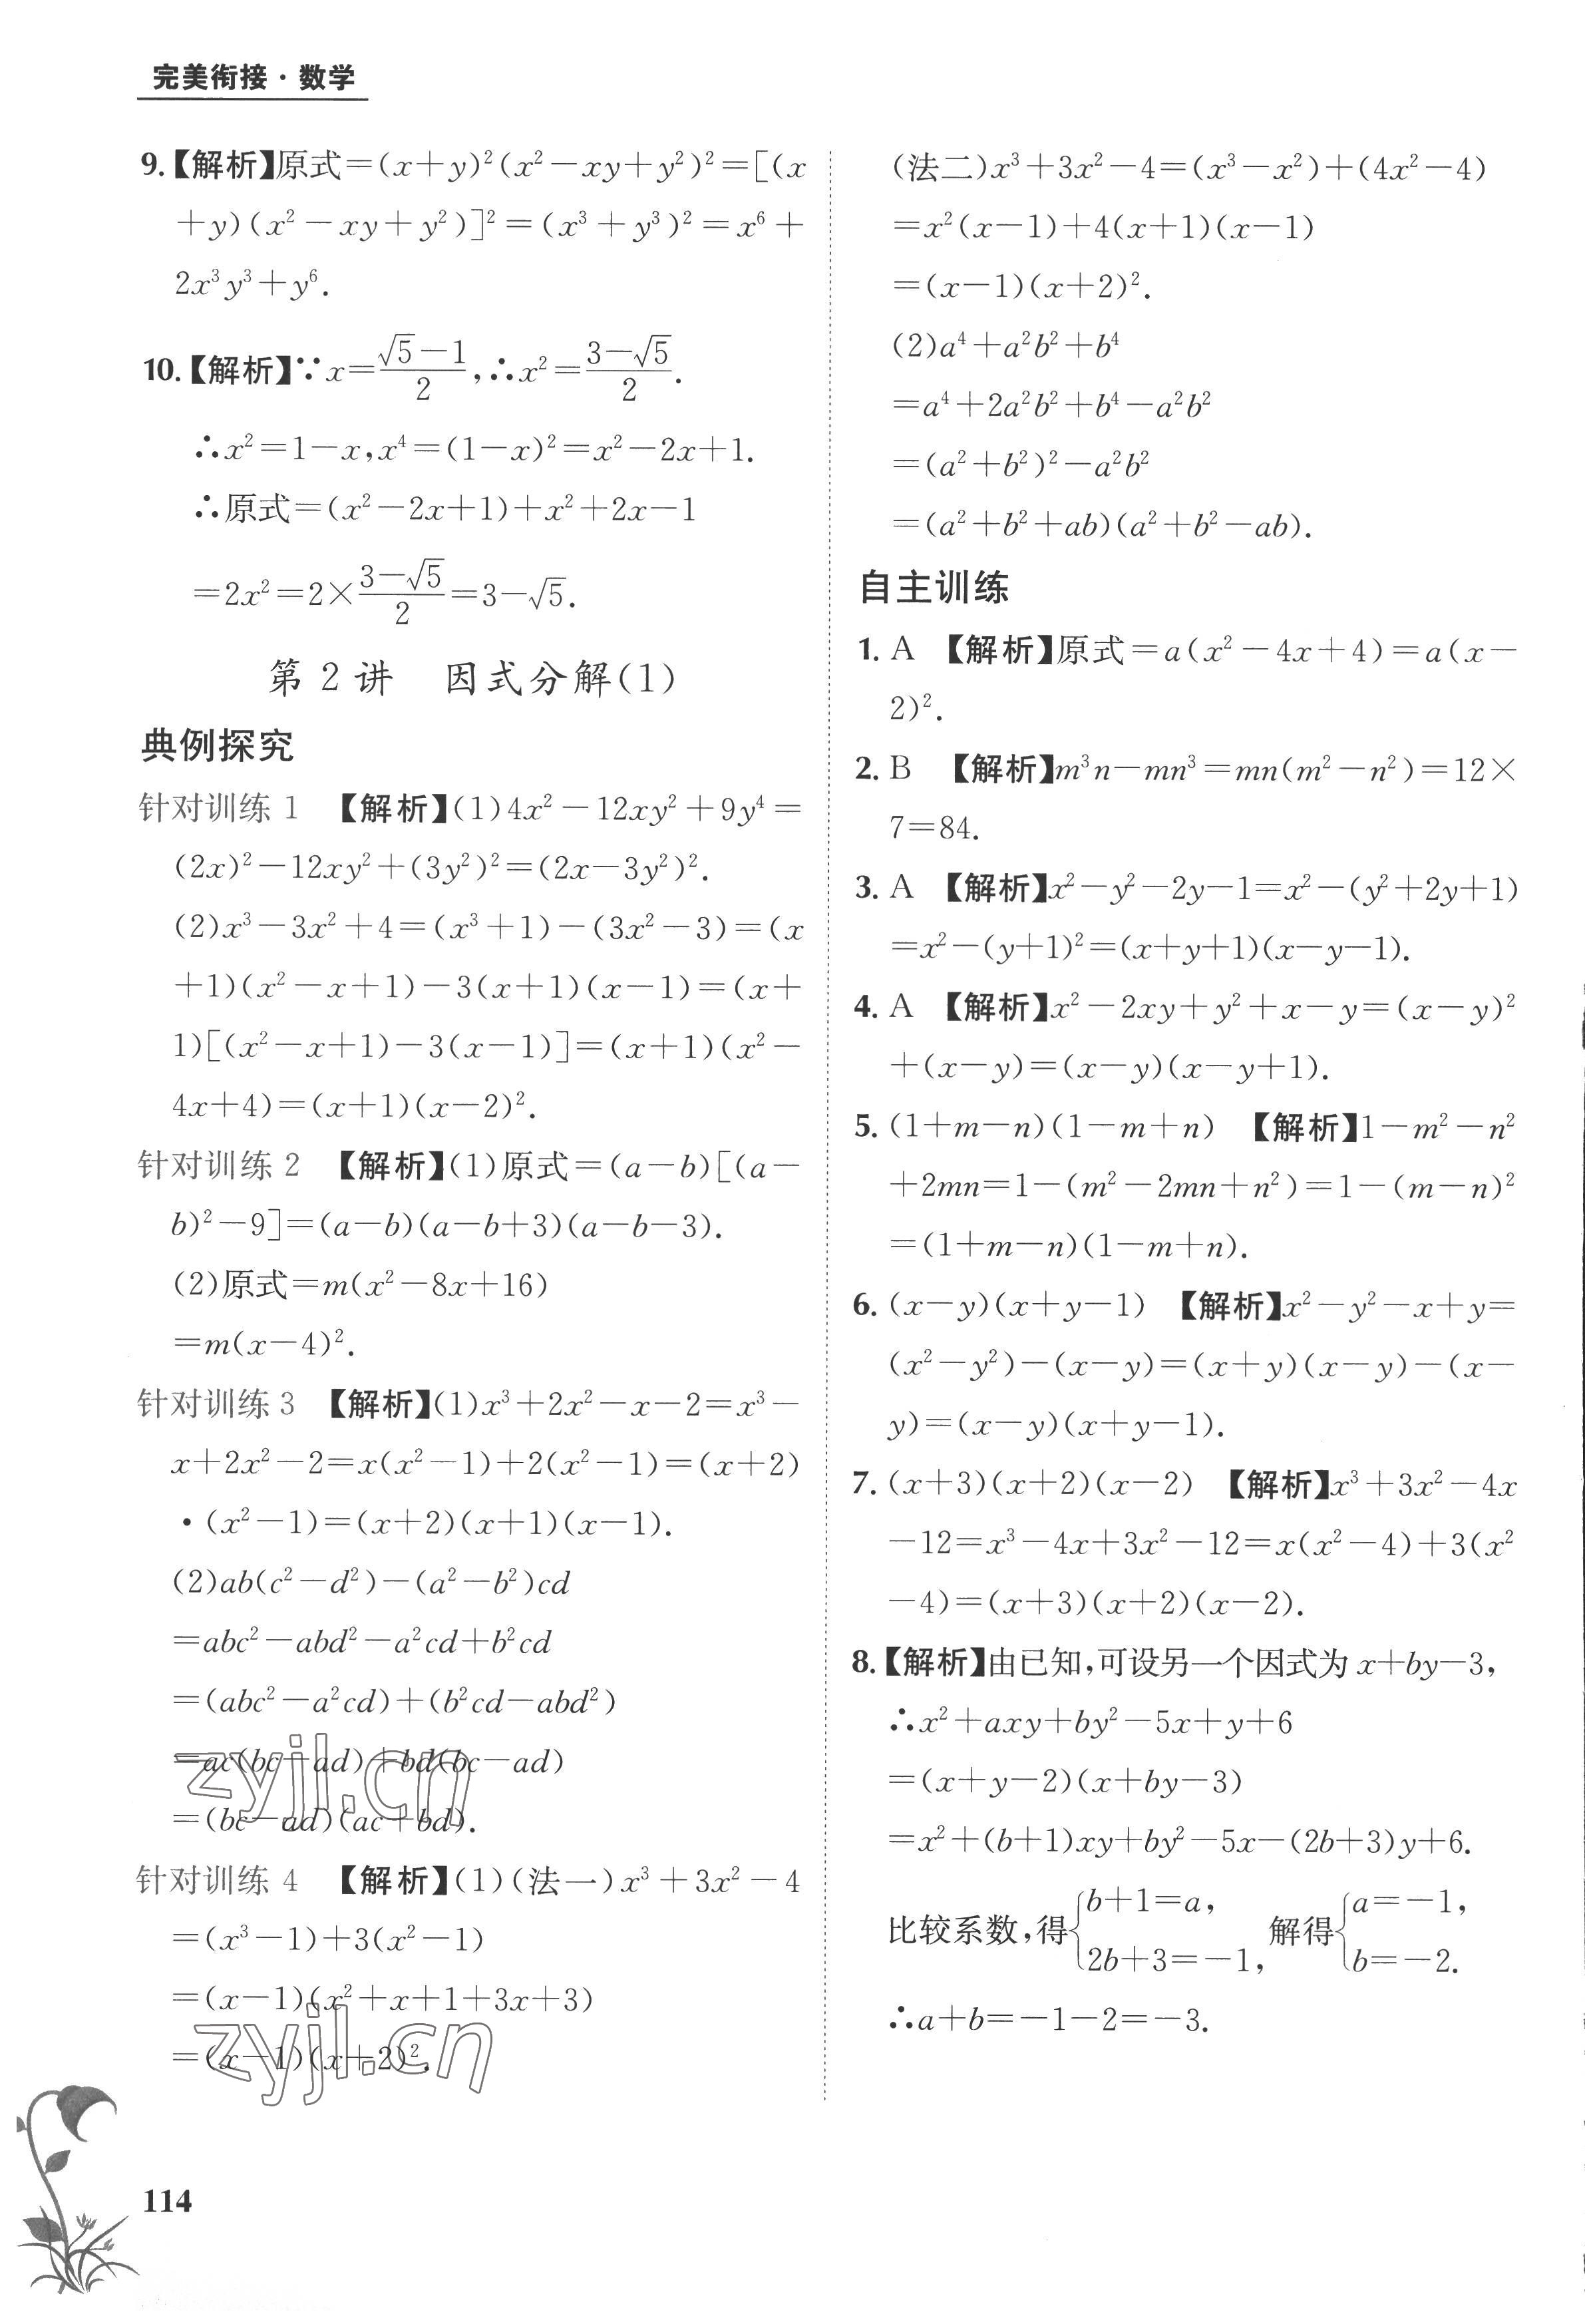 完美衔接·数学
9.【解析】原式=(x+y)²(x²-xy+y²)²=[(x
+y)(x²-xy+y²)]²=(x³+y³)²=x⁶+
2x³y³+y⁶.
10.【解析】∵x=(√5-1)/2,∴x²=(3-√5)/2.
∴x²=1-x,x⁴=(1-x)²=x²-2x+1.
∴原式=(x²-2x+1)+x²+2x-1
=2x²=2×(3-√5)/2=3-√5.
第2讲 因式分解(1)
典例探究
针对训练1 【解析】(1)4x²-12xy²+9y⁴=
(2x)²-12xy²+(3y²)²=(2x-3y²)².
(2)x³-3x²+4=(x³+1)-(3x²-3)=(x
+1)(x²-x+1)-3(x+1)(x-1)=(x+
1)[(x²-x+1)-3(x-1)]=(x+1)(x²-
4x+4)=(x+1)(x-2)².
针对训练2 【解析】(1)原式=(a-b)[(a-
b)²-9]=(a-b)(a-b+3)(a-b-3).
(2)原式=m(x²-8x+16)
=m(x-4)².
针对训练3 【解析】(1)x³+2x²-x-2=x³-
x+2x²-2=x(x²-1)+2(x²-1)=(x+2)
·(x²-1)=(x+2)(x+1)(x-1).
(2)ab(c²-d²)-(a²-b²)cd
=abc²-abd²-a²cd+b²cd
=(abc²-a²cd)+(b²cd-abd²)
=ac(bc-ad)+bd(bc-ad)
=(bc-ad)(ac+bd).
zyjl.cn
针对训练4 【解析】(1)(法一)x³+3x²-4
=(x³-1)+3(x²-1)
=(x-1)(x²+x+1+3x+3)
=(x-1)(x+2)².
zyjl.cn
(法二)x³+3x²-4=(x³-x²)+(4x²-4)
=x²(x-1)+4(x+1)(x-1)
=(x-1)(x+2)².
(2)a⁴+a²b²+b⁴
=a⁴+2a²b²+b⁴-a²b²
=(a²+b²)²-a²b²
=(a²+b²+ab)(a²+b²-ab).
自主训练
1. A 【解析】原式=a(x²-4x+4)=a(x-
2)².
2. B 【解析】m³n-mn³=mn(m²-n²)=12×
7=84.
3. A 【解析】x²-y²-2y-1=x²-(y²+2y+1)
=x²-(y+1)²=(x+y+1)(x-y-1).
4. A 【解析】x²-2xy+y²+x-y=(x-y)²
+(x-y)=(x-y)(x-y+1).
5. (1+m-n)(1-m+n) 【解析】1-m²-n²
+2mn=1-(m²-2mn+n²)=1-(m-n)²
=(1+m-n)(1-m+n).
6. (x-y)(x+y-1) 【解析】x²-y²-x+y=
(x²-y²)-(x-y)=(x+y)(x-y)-(x-
y)=(x-y)(x+y-1).
7. (x+3)(x+2)(x-2) 【解析】x³+3x²-4x
-12=x³-4x+3x²-12=x(x²-4)+3(x²
-4)=(x+3)(x+2)(x-2).
8.【解析】由已知,可设另一个因式为x+by-3,
∴x²+axy+by²-5x+y+6
=(x+y-2)(x+by-3)
=x²+(b+1)xy+by²-5x-(2b+3)y+6.
比较系数,得{b+1=a, 2b+3=-1, 解得{a=-1, b=-2.
∴a+b=-1-2=-3.
114